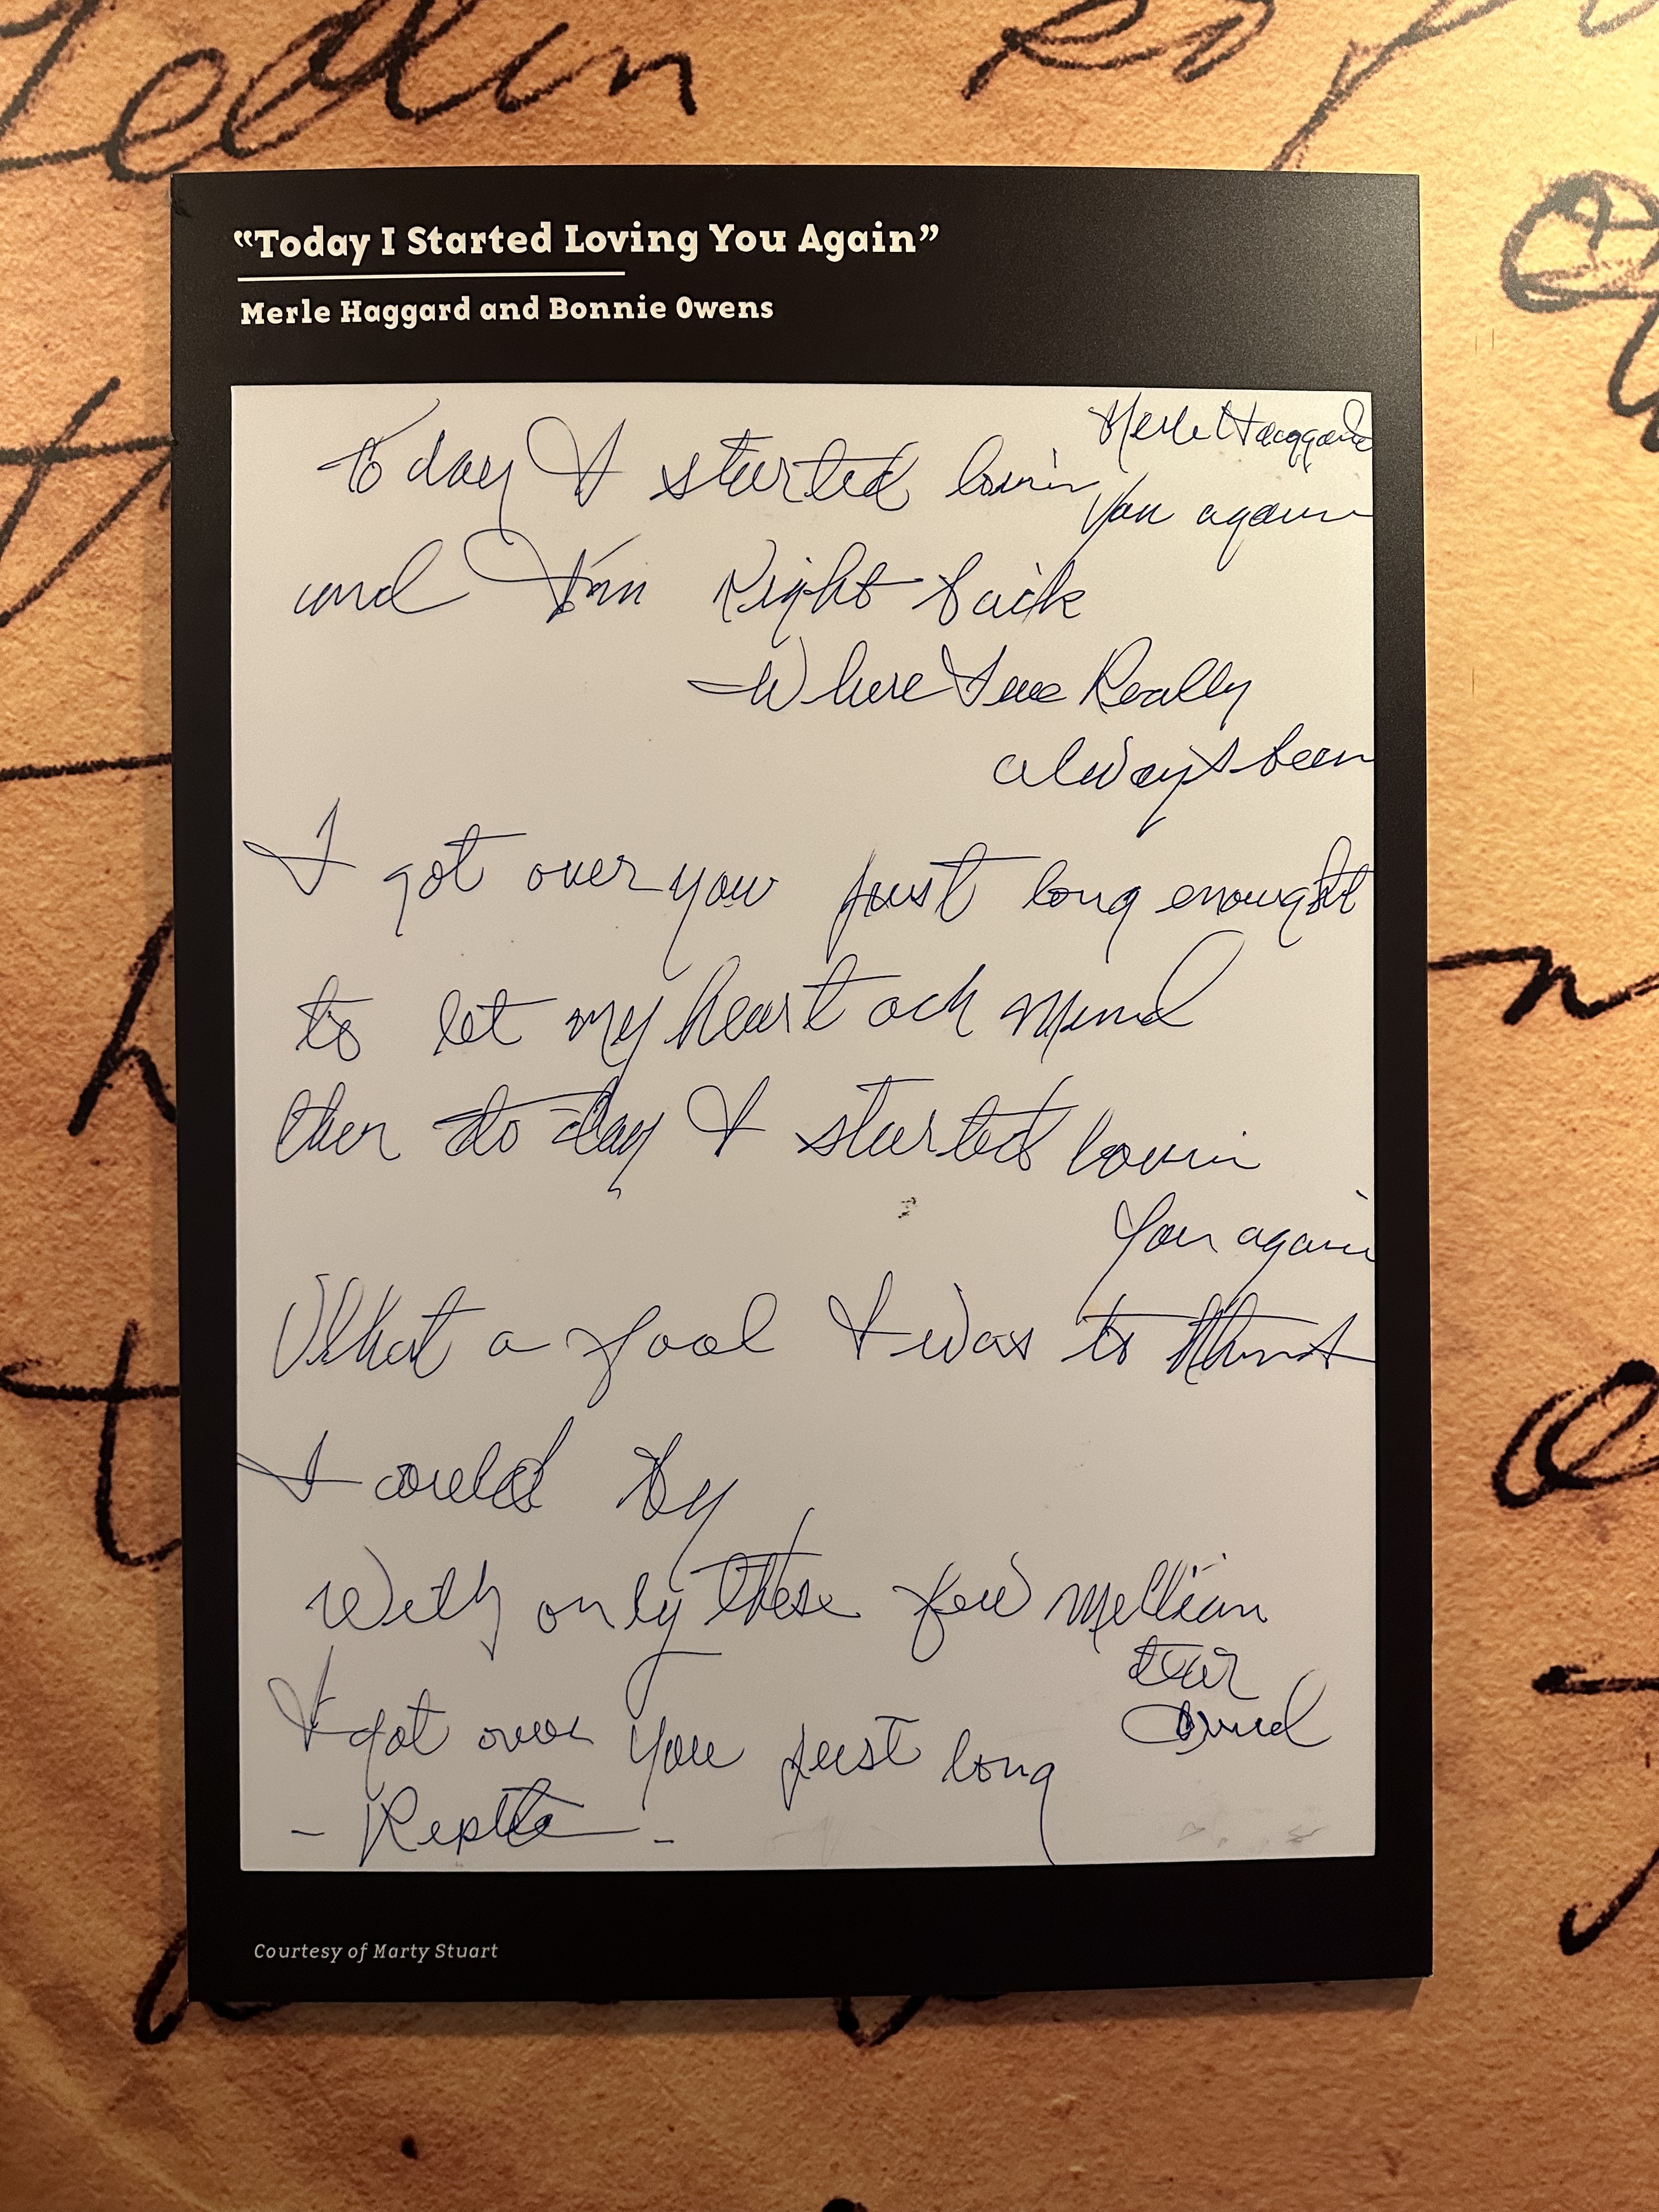 “Today I Started Loving You Again”
Merle Haggard and Bonnie Owens
Merle Haggard
to day I started lovin
You again
and I'm Right back
Where I've Really
always been
I got over you just long enought
to let my heart ach mend
then to day I started lovin
You again
What a fool I was to think
I could by
With only these few million
tear
I got over you just long
Courtesy of Marty Stuart